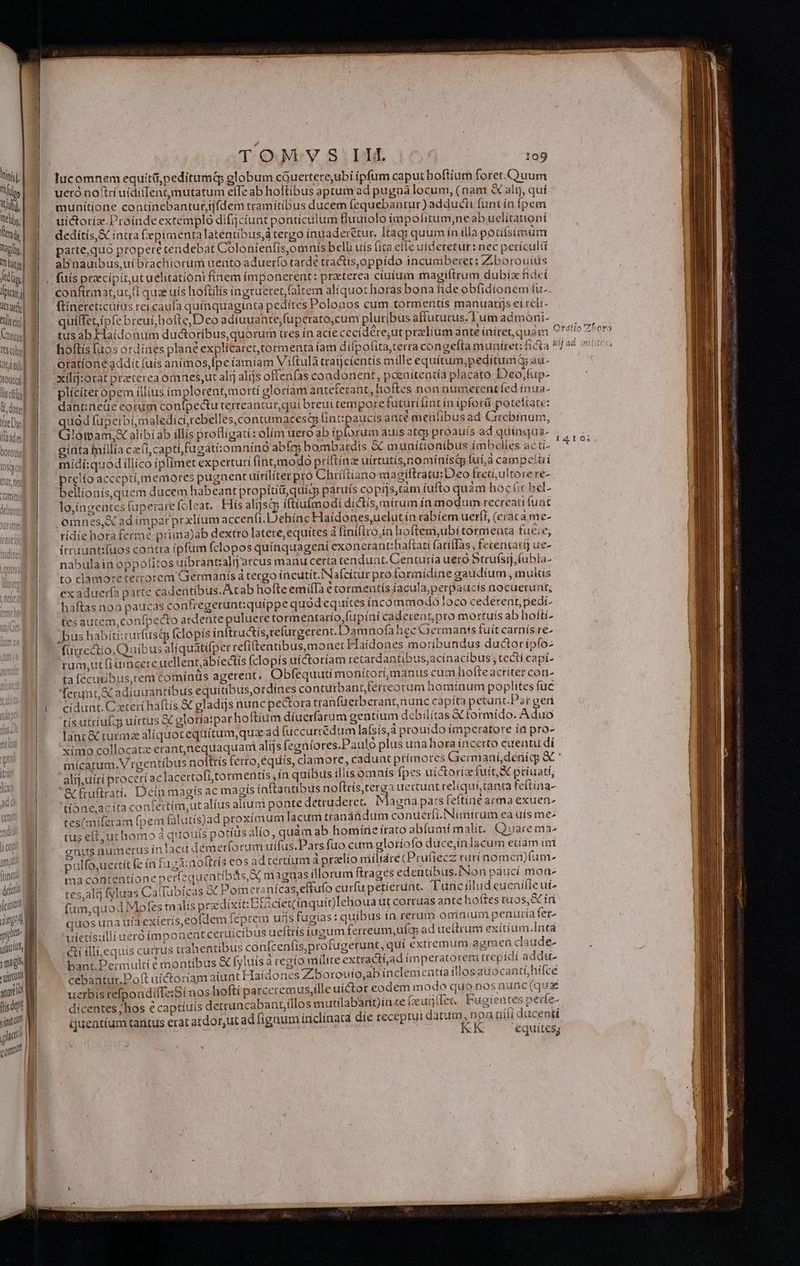 TOMVS III. 109
lucomnem equitū, peditumq́; globum cōuertere, ubi ipſum caput hoſtium foret. Quum
uerò noſtri uidiſſent, mutatum eſſe ab hoſtibus aptum ad pugnā locum, (nam & alij, qui
munitione continebantur, ijſdem tramitibus ducem ſequebantur) adducti ſunt in ſpem
uictoriæ. Proinde extemplò diſijciunt ponticulum fluuiolo impoſitum, ne ab uelitationi
deditis, & intra ſepimenta latentibus, à tergo inuaderētur. Itaq; quum in illa potiſsimùm
parte, quo properè tendebat Colonienſis, omnis belli uis ſita eſſe uideretur: nec periculū
ab nauibus, ui brachiorum uento aduerſo tardè tractis, oppido incumberet: Zborouius
ſuis præcipit, ut uelitationi finem imponerent: præterea ciuium magiſtrum dubiæ fidei
confirmat, ut, ſi quæ uis hoſtilis ingrueret, ſaltem aliquot horas bona fide obſidionem ſu-
ſtineret: cuius rei cauſa quinquaginta pedites Polonos cum tormentis manuarijs ei reli-
quiſſet, ipſe breui, hoſte, Deo adiuuante, ſuperato, cum pluribus affuturus. Tum admoni-
tus ab Haidonum ductoribus, quorum tres in acie cecidēre, ut prælium ante iniret, quàm
hoſtis ſuos ordines planè explicaret, tormenta iam diſpoſita, terra congeſta muniret: ficta
oratione addit ſuis animos, ſpe iamiam Viſtulā traijcientis mille equitum, peditumq́; au-
xilij: orat præterea omnes, ut alij alijs offenſas condonent, pœnitentia placato Deo, ſup-
pliciter opem illius implorent, morti gloriam anteferant, hoſtes non numerent ſed inua-
dant: neue eorum conſpectu terreantur, qui breui tempore futuri ſint in ipſorū poteſtate:
quòd ſuperbi, maledici, rebelles, contumacesq́; ſint: paucis antè menſibus ad Grebinum,
Glowam, & alibi ab illis profligati: olim uerò ab ipſorum auis atq; proauis ad quinqua-
ginta millia cæſi, capti, fugati: omnino abſq; bombardis & munitionibus imbelles ac ti-
midi: quod illico ipſimet experturi ſint, modò priſtinæ uirtutis, nominisq́; ſui, à campeſtri
prælio accepti, memores pugnent uiriliter pro Chriſtiano magiſtratu: Deo freti, ultore re-
bellionis, quem ducem habeant propitiū, quiq; paruis copijs, tàm iuſto quàm hoc ſit bel-
lo, ingentes ſuperare ſoleat. His alijsq́; iſtiuſmodi dictis, mirum in modum recreati ſunt
omnes, & ad impar prælium accenſi. Dehinc Haidones, uelut in rabiem uerſi, (erat à me-
ridie hora fermè prima) ab dextro latere, equites à ſiniſtro, in hoſtem, ubi tormenta fuēre,
irruunt: ſuos contra ipſum ſclopos quingageni exonerant: haſtati ſariſſas, ferentarij ue-
nabula in oppoſitos uibrant: alij arcus manu certa tendunt. Centuria uerò Strufsij, ſubla-
to clamore terrorem Germanis à tergo incutit. Naſcitur pro formidine gaudium, multis
ex aduerſa parte cadentibus. At ab hoſte emiſſa è tormentis iacula, perpaucis nocuerunt,
haſtas non paucas confregerunt: quippe quòd equites incommodo loco cederent, pedi-
tes autem, conſpecto ardente puluere tormentario, ſupini caderent, pro mortuis ab hoſti-
bus habiti: rurſusq́; ſclopis inſtructis, reſurgerent. Damnoſa hęc Germanis fuit carnis re-
ſurrectio. Quibus aliquātiſper reſiſtentibus, monet Haidones moribundus ductor ipſo-
rum, ut ſi uincere uellent, abiectis ſclopis uictoriam retardantibus, acinacibus, tecti capi-
ta ſecuribus, rem cominùs agerent. Obſequuti monitori, manus cum hoſte acriter con-
ferunt, & adiuuantibus equitibus, ordines conturbant, ferreorum hominum poplites ſuc
cidunt. Cæteri haſtis & gladijs nunc pectora tranſuerberant, nunc capita petunt. Par gen
tis utriuſq; uirtus & gloria: par hoſtium diuerſarum gentium debilitas & formido. Aduo
lant & turmæ aliquot equitum, quæ ad ſuccurrēdum laſsis, à prouido imperatore in pro-
ximo collocatæ erant, nequaquam alijs ſegniores. Paulò plus una hora incerto euentu di
micatum. Vrgentibus noſtris ferro, equis, clamore, cadunt primores Germani, deniq; &
alij, uiri proceri ac lacertoſi, tormentis, in quibus illis omnis ſpes uictoriæ fuit, & priuati,
& fruſtrati. Dein magis ac magis inſtantibus noſtris, terga uertunt reliqui, tanta feſtina-
tione, ac ita confertim, ut alius alium ponte detruderet. Magna pars feſtinè arma exuen-
tes (miſeram ſpem ſalutis) ad proximum lacum tranādum conuerſi. Nimirum ea uis me-
tus eſt, ut homo à quouis potius alio, quàm ab homine irato abſumi malit. Quare ma-
gnus numerus in lacu demerſorum uiſus. Pars ſuo cum glorioſo duce, in lacum etiam im
pulſo, uertit ſe in fugā: noſtris eos ad tertium à prælio miliare (Pruſiecz ruri nomen) ſum-
ma contentione perſequentibus, & magnas illorum ſtrages edentibus. Non pauci mon-
tes, alij ſyluas Caſſubicas & Pomeranicas, effuſo curſu petierunt. Tunc illud eueniſſe ui-
ſum, quod Moſes malis prædixit: Efficiet (inquit) Iehoua ut corruas ante hoſtes tuos, & in
quos una uia exieris, eoſdem ſeptem uijs fugias: quibus in rerum omnium penuria ſer-
uieris: illi uerò imponent ceruicibus ueſtris iugum ferreum, uſq; ad ueſtrum exitium. Inta
cti illi, equis currus trahentibus conſcenſis, profugerunt, qui extremum agmen claude-
bant. Permulti è montibus & ſyluis à regio milite extracti, ad imperatorem trepidi addu-
cebantur. Poſt uictoriam aiunt Haidones Zborouio, ab inclementia illos auocanti, hiſce
uerbis reſpondiſſe: Si nos hoſti parceremus, ille uictor eodem modo quo nos nunc (quæ
dicentes, hos è captiuis detruncabant, illos mutilabant) in te ſæuijſſet. Fugientes perſe-
quentium tantus erat ardor, ut ad ſignum inclinata die receptui datum, non niſi ducenti
KK equites,
Oratio Zboro
uij ad milites.
1410.